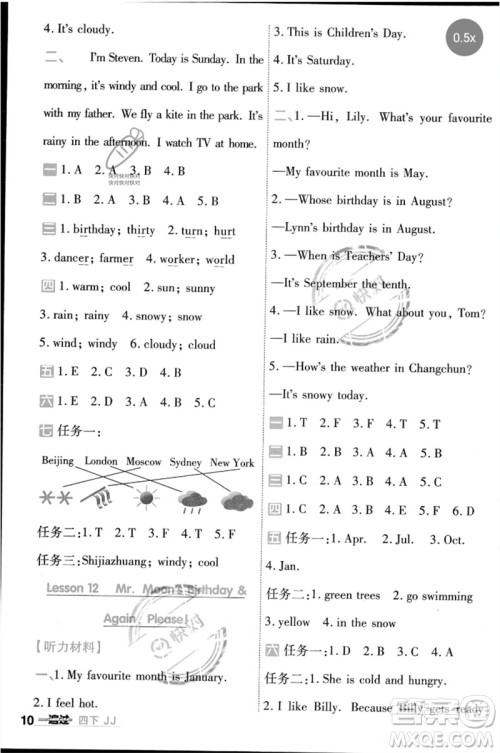 4. It's cloudy.
二、 I'm Steven. Today is Sunday. In the
morning, it's windy and cool. I go to the park
with my father. We fly a kite in the park. It's
rainy in the afternoon. I watch TV at home.
一 1. A 2. A 3. B 4. B
二 1. C 2. A 3. B 4. A 5. C
三 1. birthday; thirty 2. turn; hurt
3. dancer; farmer 4. worker; world
四 1. warm; cool 2. sun; sunny
3. rain; rainy 4. snowy; snow
5. wind; windy 6. cloudy; cloud
五 1. E 2. C 3. D 4. A 5. B
六 1. E 2. A 3. C 4. B 5. D
七 任务一:
Beijing London Moscow Sydney New York
任务二: 1. T 2. T 3. F 4. T 5. F
任务三: Shijiazhuang; windy; cool
Lesson 12 Mr. Moon's Birthday &
Again, Please!
【听力材料】
一、1. My favourite month is January.
2. I feel hot.
10 一遍过 四下 JJ
3. This is Children's Day.
4. It's Saturday.
5. I like snow.
二、1. —Hi, Lily. What's your favourite
month?
—My favourite month is May.
2. —Whose birthday is in August?
—Lynn's birthday is in August.
3. —When is Teachers' Day?
—It's September the tenth.
4. —I like snow. What about you, Tom?
—I like rain.
5. —How's the weather in Changchun?
—It's snowy today.
一 1. T 2. F 3. F 4. T 5. T
二 1. C 2. B 3. C 4. B 5. A
三 1. C 2. C 3. A 4. B 5. A
四 1. C 2. A 3. E 4. B 5. F 6. D
五 任务一: 1. Apr. 2. Jul. 3. Oct.
4. Jan.
任务二: 1. green trees 2. go swimming
3. yellow 4. in the snow
六 任务一: 1. She is cold and hungry.
2. I like Billy. Because Billy gets ready
0.5x
快对
快对